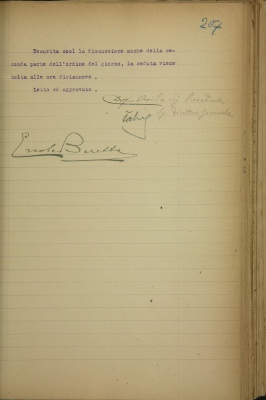 207
Esaurita così la discussione anche della se-
conda parte dell'ordine del giorno, la seduta viene
tolta alle ore diciannove.
Letto ed approvato.
Il Presidente
Ercole Baretta